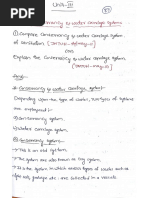 Unit-III
Conservancy & water carriage systems
① Compare Conservancy & water carriage system
of sanitation
(or)
Explain the Conservancy & water carriage system
Ans:-
* Conservancy & water carriage system:-
Depending upon the type of waste, two types of systems
are employed
① Conservancy system
② water carriage system.
① Conservancy system:-
* This is an old system
* The system is also known as dry system
* It is the system in which different types of wastes such as
garbage etc. are collected in a vessels